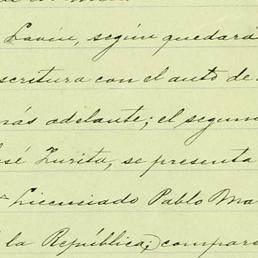 Lavín, según quedará
escritura con el auto de
más adelante; el segun
José Zurita, se presenta
Licenciado Pablo Ma
la República; compar